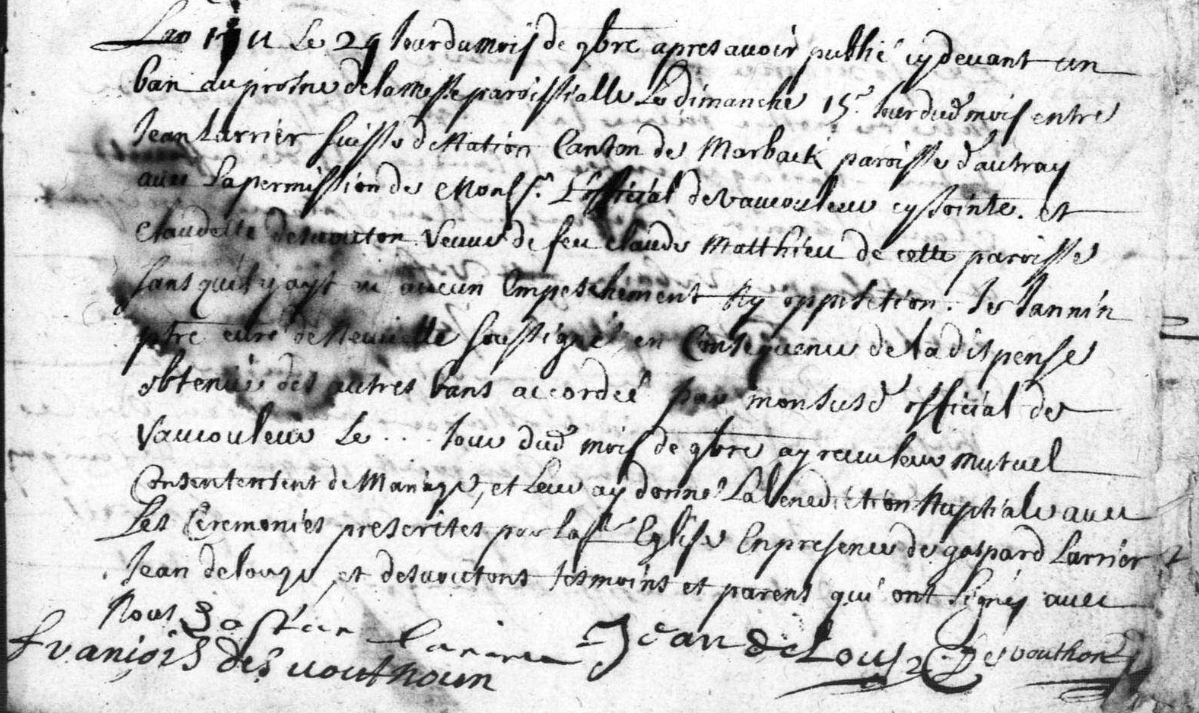 Lan 1711 Le 24 Jour du mois de 9bre apres avoir publié cy devant un
ban au prosne de la messe paroissialle Le dimanche 15e Jour dud mois entre
Jean Larrier suisse de Nation Canton de Morback paroisse d'autray
avec la permission de Monsr L'official de vaucouleur cy Jointe. et
Claudette desvouton veuve de feu Claude Matthieu de cette paroisse
sans qu'il y ayt eu aucun Empeschement Ny opposition. Je Jannin
ptre curé de Neuville soussigné en Consequence de la dispense
obtenue des autres bans accordée par monsusd official de
Vaucouleur Le ... Jour dud mois de 9bre ay receu leur mutuel
Consentement de Mariage, et leur ay donné La benediction Nuptiale avec
Les Ceremonies prescrites par la ste Eglise En presence de gaspard Larrier
Jean delouze et desvoutons tesmoins et parens qui ont signés avec
Nous
Jean de Louze Desvouthon
franiois des vouthoun